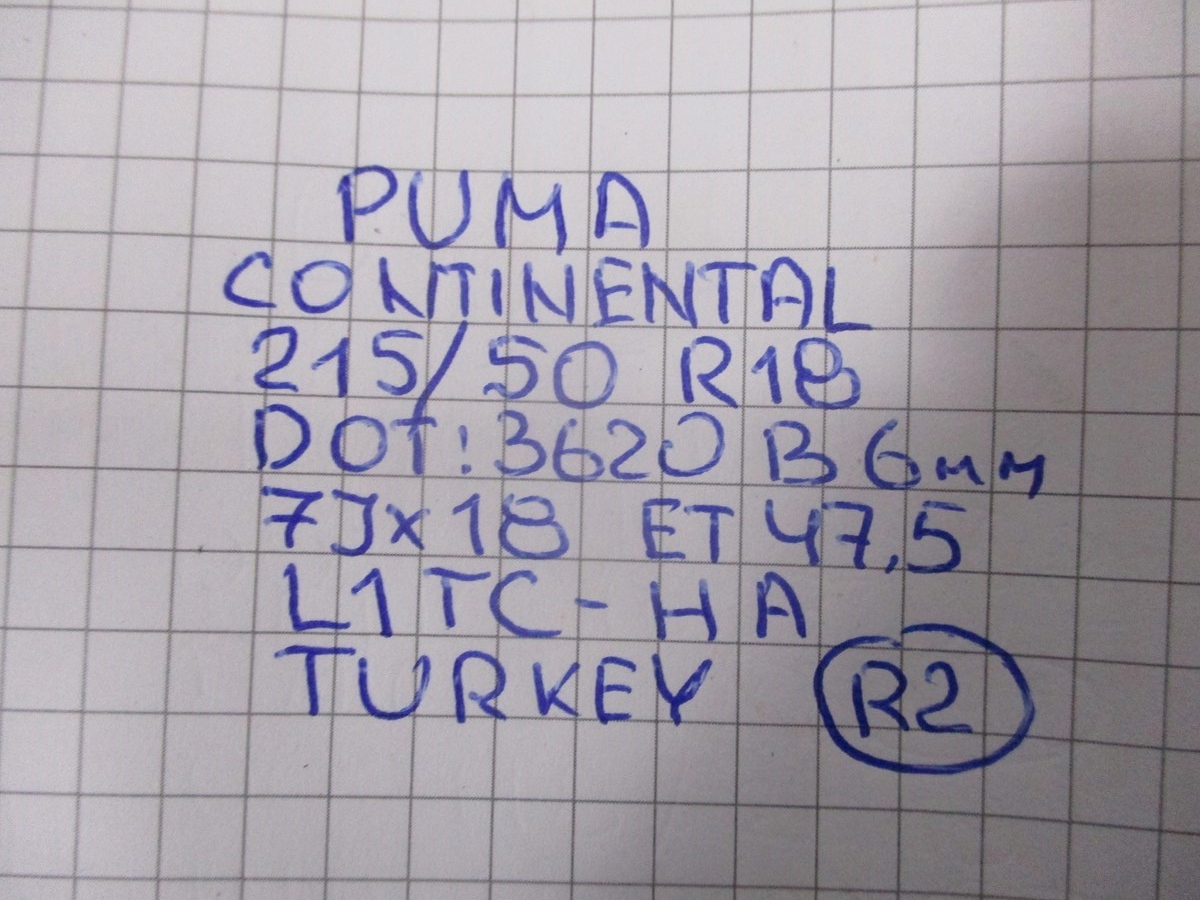 PUMA
CONTINENTAL
215/50 R18
DOT: 3620 B 6mm
7Jx18 ET 47,5
L1TC-HA
TURKEY R2